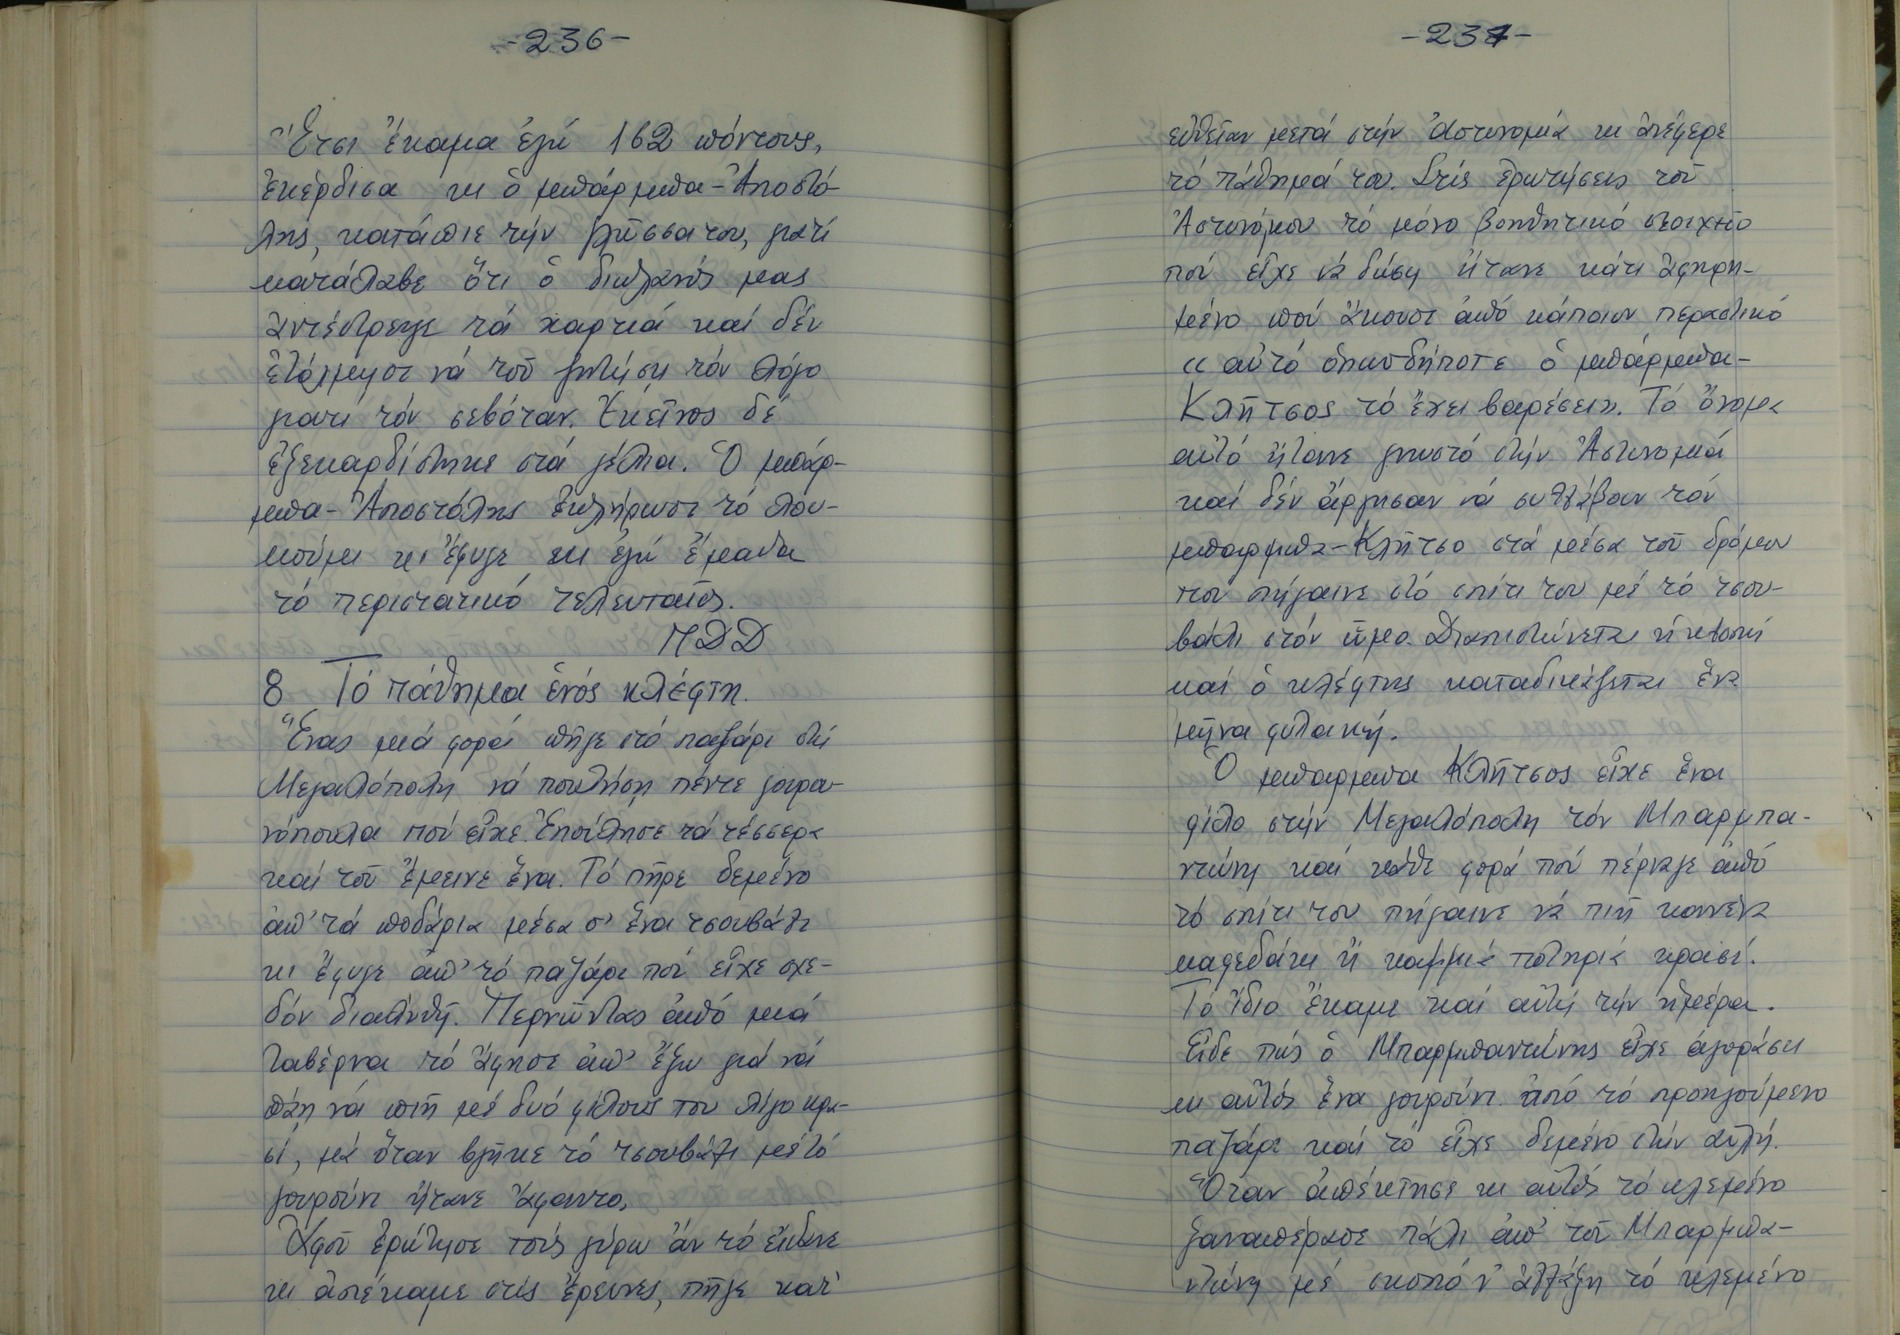 -236-
Ἔτσι ἔκαμα ἐγώ 162 πόντους,
ἐκέρδισα κι ὁ μπάρμπα-Ἀποστό-
λης, κατάπιε τήν γλῶσσα του, γιατί
κατάλαβε ὅτι ὁ διπλανός μας
ἀντέστρεψε τά χαρτιά καί δέν
ἐτόλμησε νά τοῦ ζητήση τόν λόγο
γιατί τόν σεβόταν. Ἐκεῖνος δέ
ἐξεκαρδίστηκε στά γέλια. Ὁ μπάρ-
μπα-Ἀποστόλης ἐπλήρωσε τό λου-
κούμι κι ἔφυγε κι ἐγώ ἔμαθα
τό περιστατικό τελευταῖος.
ΠΔΔ
8 Τό πάθημα ἑνός κλέφτη.
Ἕνας μιά φορά πῆγε στό παζάρι στή
Μεγαλόπολη νά πουλήση πέντε γουρου-
νόπουλα πού εἶχε. Ἐπούλησε τά τέσσερα
καί τοῦ ἔμεινε ἕνα. Τό πῆρε δεμένο
ἀπ' τά ποδάρια μέσα σ' ἕνα τσουβάλι
κι ἔφυγε ἀπ' τό παζάρι πού εἶχε σχε-
δόν διαλυθῆ. Περνῶντας ἀπό μιά
ταβέρνα τό ἄφησε ἀπ' ἔξω γιά νά
πάη νά πιῆ μέ δυό φίλους του λίγο κρα-
σί, μά ὅταν βγῆκε τό τσουβάλι μέ τό
γουρούνι ἤτανε ἄφαντο.
Ἀφοῦ ἐρώτησε τούς γύρω ἄν τό εἴδανε
κι ἀπέκαμε στίς ἔρευνες, πῆγε κατ'
-237-
εὐθεῖαν μετά στήν Ἀστυνομία κι ἀνέφερε
τό πάθημά του. Στίς ἐρωτήσεις τοῦ
Ἀστυνόμου τό μόνο βοηθητικό στοιχεῖο
πού εἶχε νά δώση ἤτανε κάτι ἀφηρη-
μένο πού ἄκουσε ἀπό κάποιον περαστικό
« αὐτό ὁπωσδήποτε ὁ μπάρμπα-
Κλῆτσος τό ἔχει βαρέσει». Τό ὄνομα
αὐτό ἤτανε γνωστό στήν Ἀστυνομία
καί δέν ἄργησαν νά συλλάβουν τόν
μπαρμπα-Κλῆτσο στά μέσα τοῦ δρόμου
που πήγαινε στό σπίτι του μέ τό τσου-
βάλι στόν ὦμο. Διαπιστώνεται ἡ κλοπή
καί ὁ κλέφτης καταδικάζεται ἕνα
μῆνα φυλακή.
Ὁ μπαρμπα Κλῆτσος εἶχε ἕνα
φίλο στήν Μεγαλόπολη τόν Μπαρμπα-
ντώνη καί κάθε φορά πού πέρναγε ἀπό
τό σπίτι του πήγαινε νά πιῆ κανένα
καφεδάκι ἤ καμμιά ποτηριά κρασί.
Τό ἴδιο ἔκαμε καί αὐτή τήν ἡμέρα.
Εἶδε πώς ὁ Μπαρμπαντώνης εἶχε ἀγοράσει
κι αὐτός ἕνα γουρούνι ἀπό τό προηγούμενο
παζάρι καί τό εἶχε δεμένο στήν αὐλή.
Ὅταν ἀπέκτησε κι αὐτός τό κλεμένο
ξαναπέρασε πάλι ἀπ' τοῦ Μπαρμπα-
ντώνη μέ σκοπό ν' ἀλλάξη τό κλεμένο